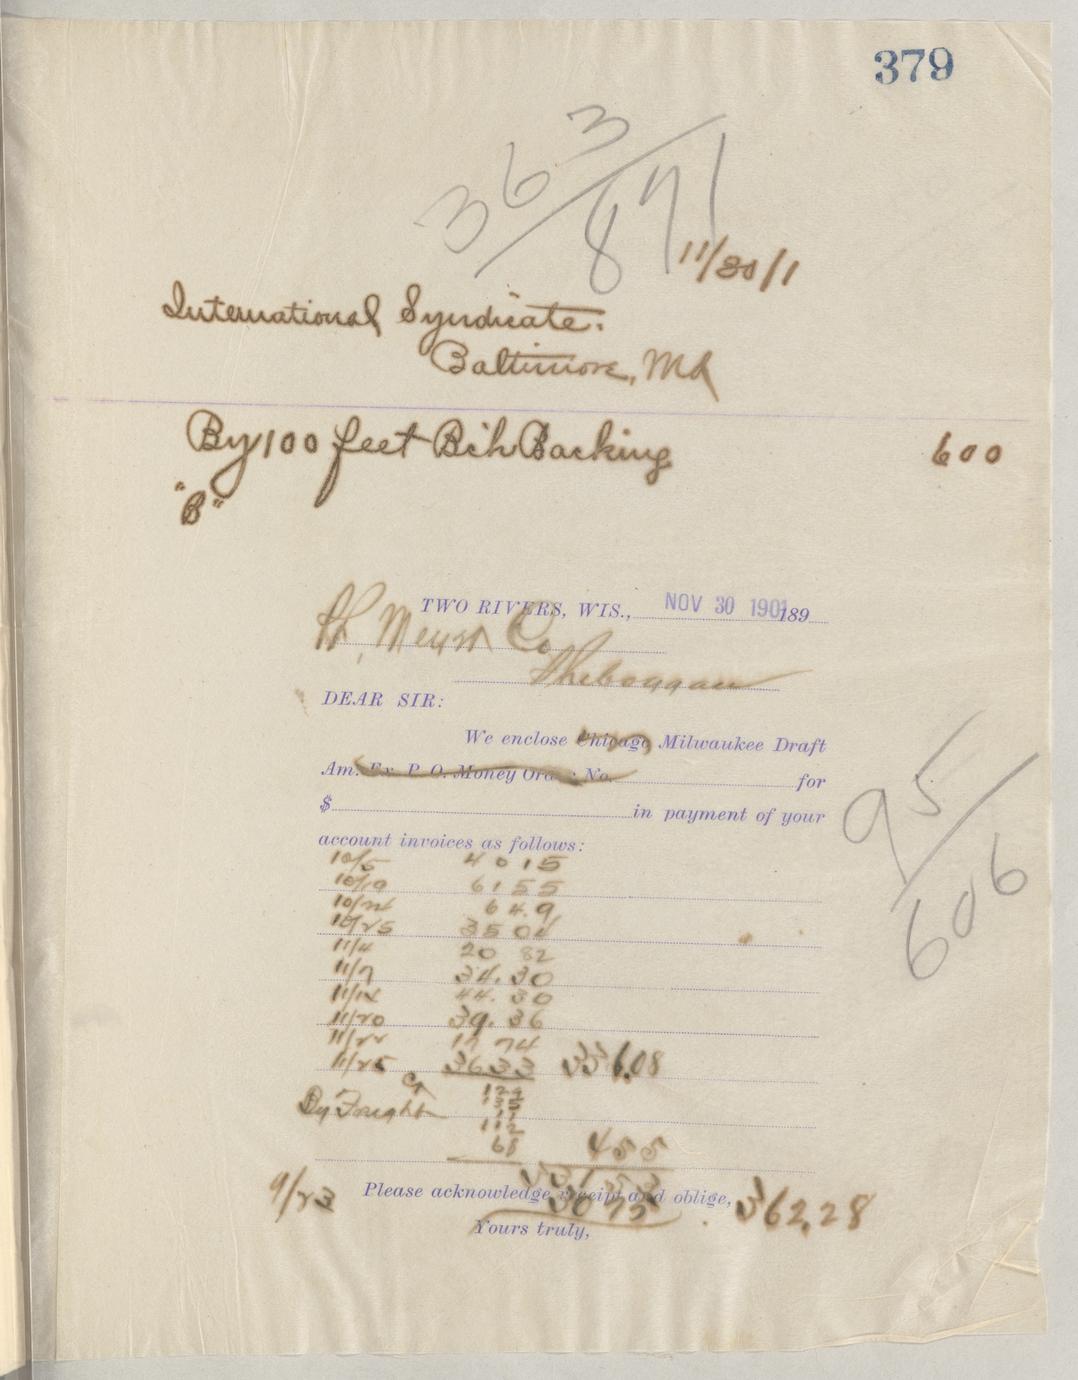 379
363/871
11/30/1
International Syndicate.
Baltimore, Md
By 100 feet Bch Backing 600
"B"
TWO RIVERS, WIS., NOV 30 1901 189
Ph. Co
Sheboygan
DEAR SIR:
We enclose Chicago Milwaukee Draft
Am. Ex. P. O. Money Order No. for
$ in payment of your
account invoices as follows:
10/5 4015
10/19 6155
10/24 649
10/25 3504
11/4 20 82
11/7 34.30
11/14 44.30
11/20 39.36
11/22 17 74
11/25 3633 336.08
Cr
By Freight 124
135
11
112
68 455
33153
9/23 Please acknowledge receipt and oblige, 362.28
3075
Yours truly,
95/606